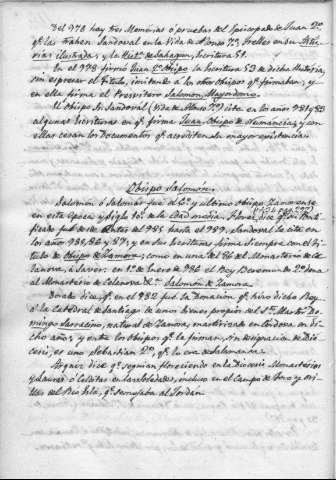 Del 978 hay tres Memorias ó pruebas del Episcopado de Juan 2º
qº las trahen Sandoval en la Vida de Alfonso 7º, Yebes en su
ilustrada, y la Histª de Sahagun, Escritura 51.
En el 978 firmó Juan 2º Obispo la Escritura 52 de dicha Historia,
sin espresar el Título, imitando á los otros Obispos qº firmaban, y
en ella firma el Presvitero Salomon, Mayordomo.
El Obispo Sr. Sandoval (Vida de Alonso 7º) cita en los años 981 y 82
algunas Escrituras en qº firma Juan Obispo de Numancia, y con
ellas cesan los Documentos qº acreditan su mayor existencia.
Obispo Salomon.
Salomon ó Salomar fué el 6º y ultimo Obispo Zamorense
en esta epoca y Siglo 10º de la Edad media. Florez dice qº su Ponti-
ficado fué desde Antes del 985 hasta el 989. Sandoval le cita en
los años 985, 86 y 87, y en sus Escrituras firma siempre con el tí-
tulo de Obispo de Zamora; como en una del 86 del Monasterio de Ce-
lanova, á saver: en 1º de Enero de 986 el Rey Bermudo 2º dona
al Monasterio de Celanova &ª Salomon de Zamora.
Donde dice qº en el 982 fué la Donación qº hizo dicho Rey
á la Catedral de Santiago de unos bienes propios del Sto Martir Do-
mingo Sarracino, natural de Zamora, martirizado en Cordova en di-
cho año, y entre los Obispos qº la firman, sin designacion de Dio-
cesis, es uno Sebastian 2º, qº lo era de Salamanca.
Argaiz dice qº seguian floreciendo en la Diocesis Monasterios
y Lauras ó Celditas en las soledades, incluso en el Campo de Toro y ori-
llas del Rio Esla, qº semejaba al Jordan